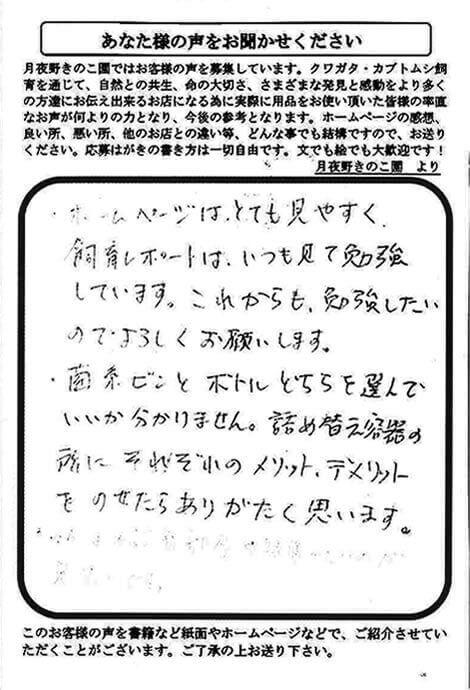 あなた様の声をお聞かせください
月夜野きのこ園ではお客様の声を募集しています。クワガタ・カブトムシ飼
育を通じて、自然との共生、命の大切さ、さまざまな発見と感動をより多く
の方達にお伝え出来るお店になる為に実際に用品をお使い頂いた皆様の率直
なお声が何よりの力となり、今後の参考となります。ホームページの感想、
良い所、悪い所、他のお店との違い等、どんな事でも結構ですので、お送り
ください。応募はがきの書き方は一切自由です。文でも絵でも大歓迎です！
月夜野きのこ園　より
・ホームページは、とても見やすく、
飼育レポートは、いつも見て勉強
しています。これからも、勉強したい
のでよろしくお願いします。
・菌糸ビンとボトルどちらを選んで
いいか分かりません。詰め替え容器の
所にそれぞれのメリット、デメリット
をのせたらありがたく思います。
このお客様の声を書籍など紙面やホームページなどで、ご紹介させてい
ただくことがございます。ご了承の上お送り下さい。